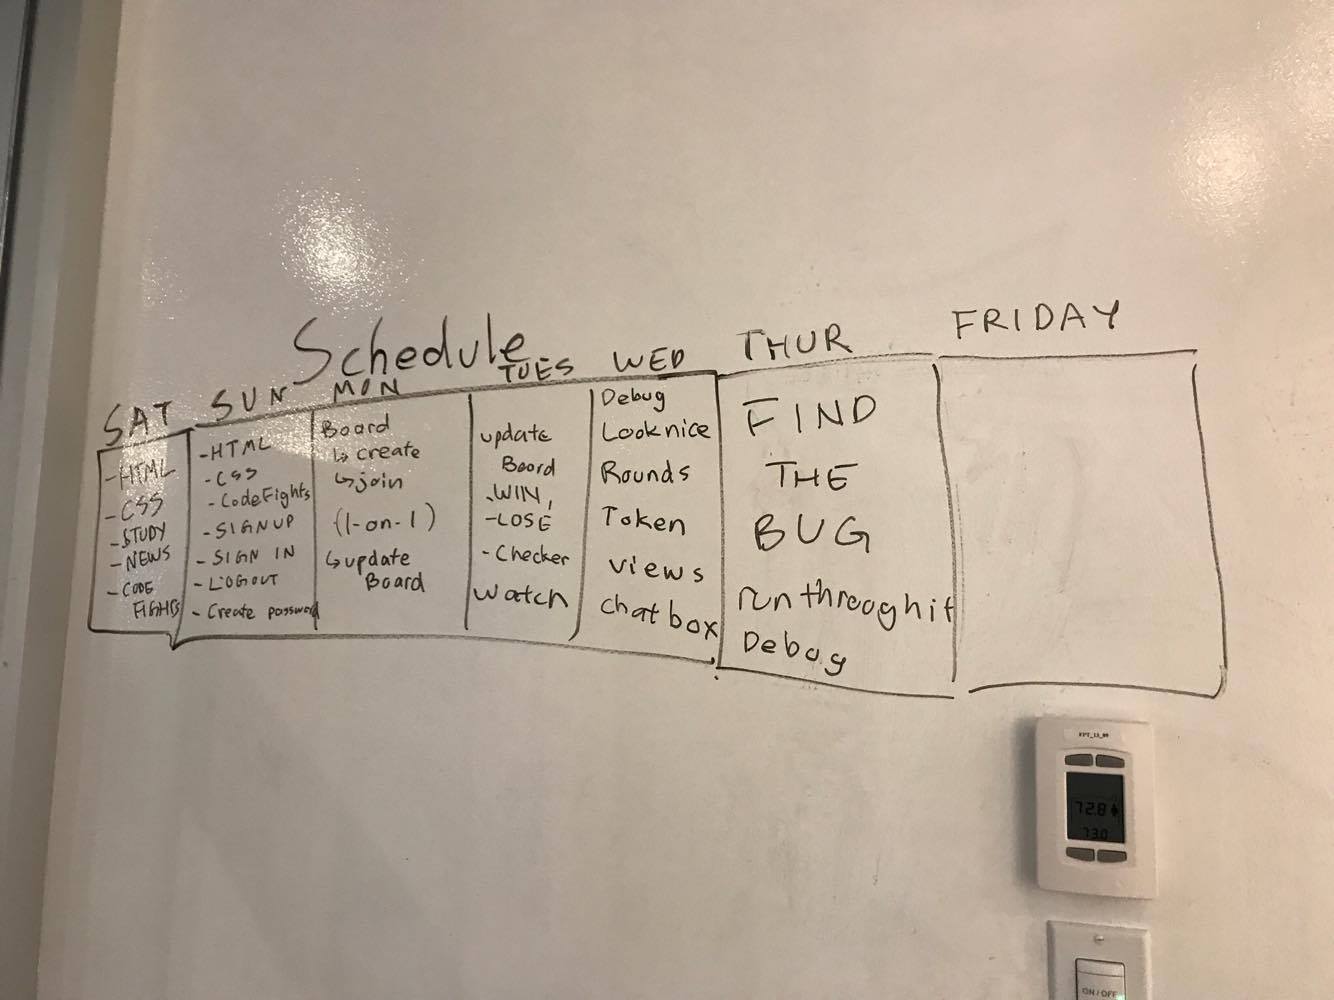 Schedule
SAT
-HTML
-CSS
-STUDY
-NEWS
-CODE
FIGHTS
SUN
-HTML
-CSS
-CodeFights
-SIGNUP
-SIGN IN
-LOGOUT
-Create password
MON
Board
↳create
↳join
(1-on-1)
↳update
Board
TUES
update
Board
-WIN,
-LOSE
-Checker
watch
WED
Debug
Looknice
Rounds
Token
views
chatbox
THUR
FIND
THE
BUG
runthrooghit
Debug
FRIDAY
72.8
73.0
ON/OFF